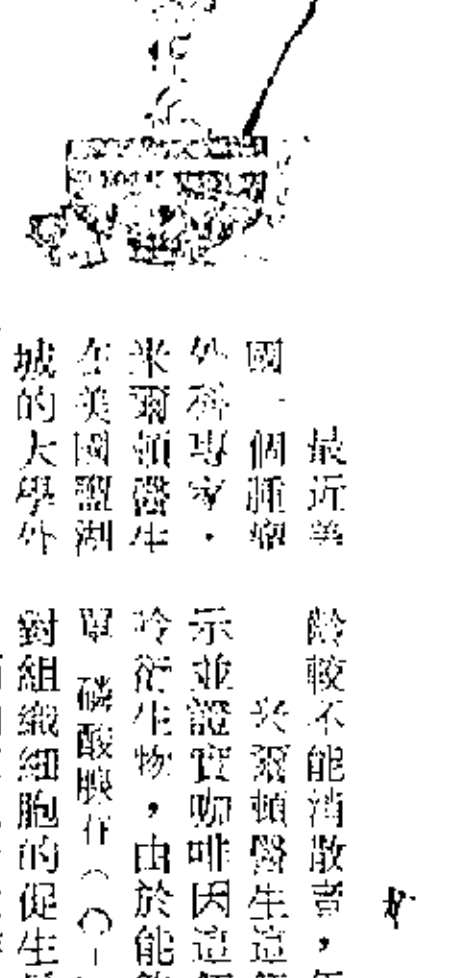 最近美
國一個腫瘤
外科專家·
米爾頓醫生
在美國鹽湖
城的大學外
齡較不能消散者，
米爾頓醫生這
示並證實咖啡因這
呤衍生物，由於能
單磷酸腺苷（
對組織細胞的促生